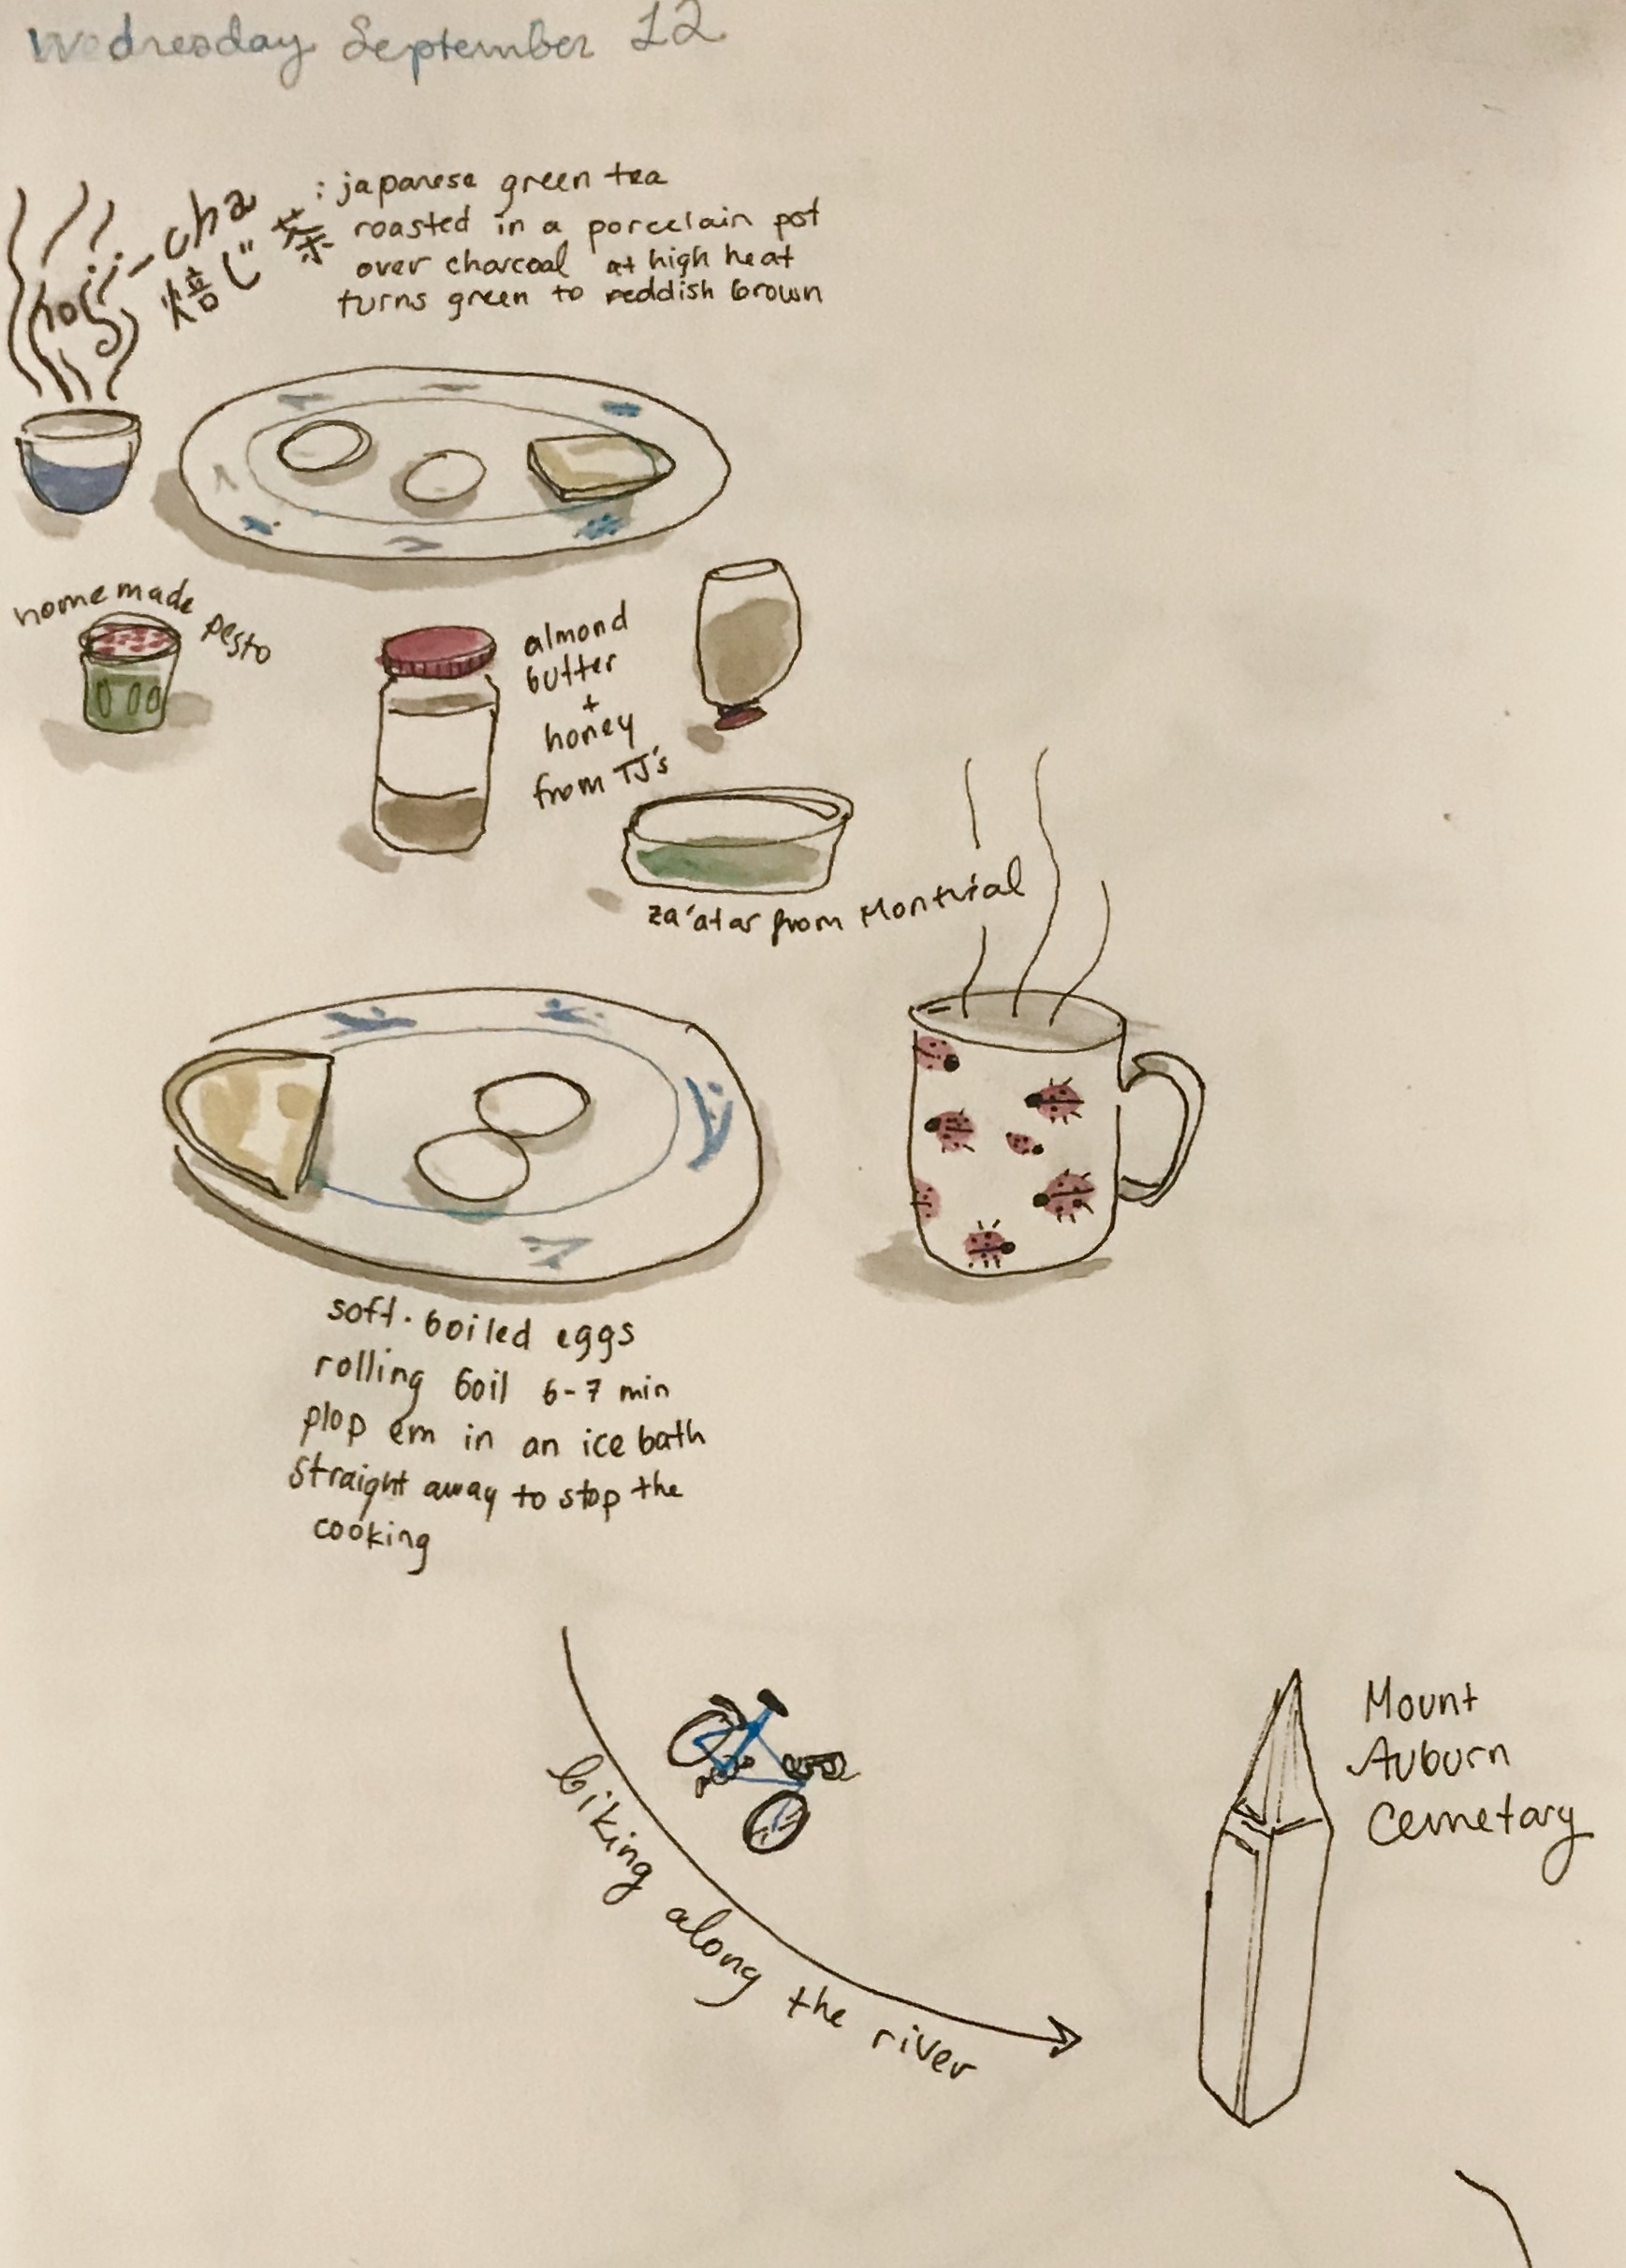 Wednesday September 12
hoji-cha
焙じ茶
: japanese green tea
roasted in a porcelain pot
over charcoal at high heat
turns green to reddish brown
homemade pesto
almond
butter
+
honey
from TJ's
za'atar from Montréal
soft-boiled eggs
rolling boil 6-7 min
plop em in an ice bath
straight away to stop the
cooking
biking along the river
Mount
Auburn
Cemetary